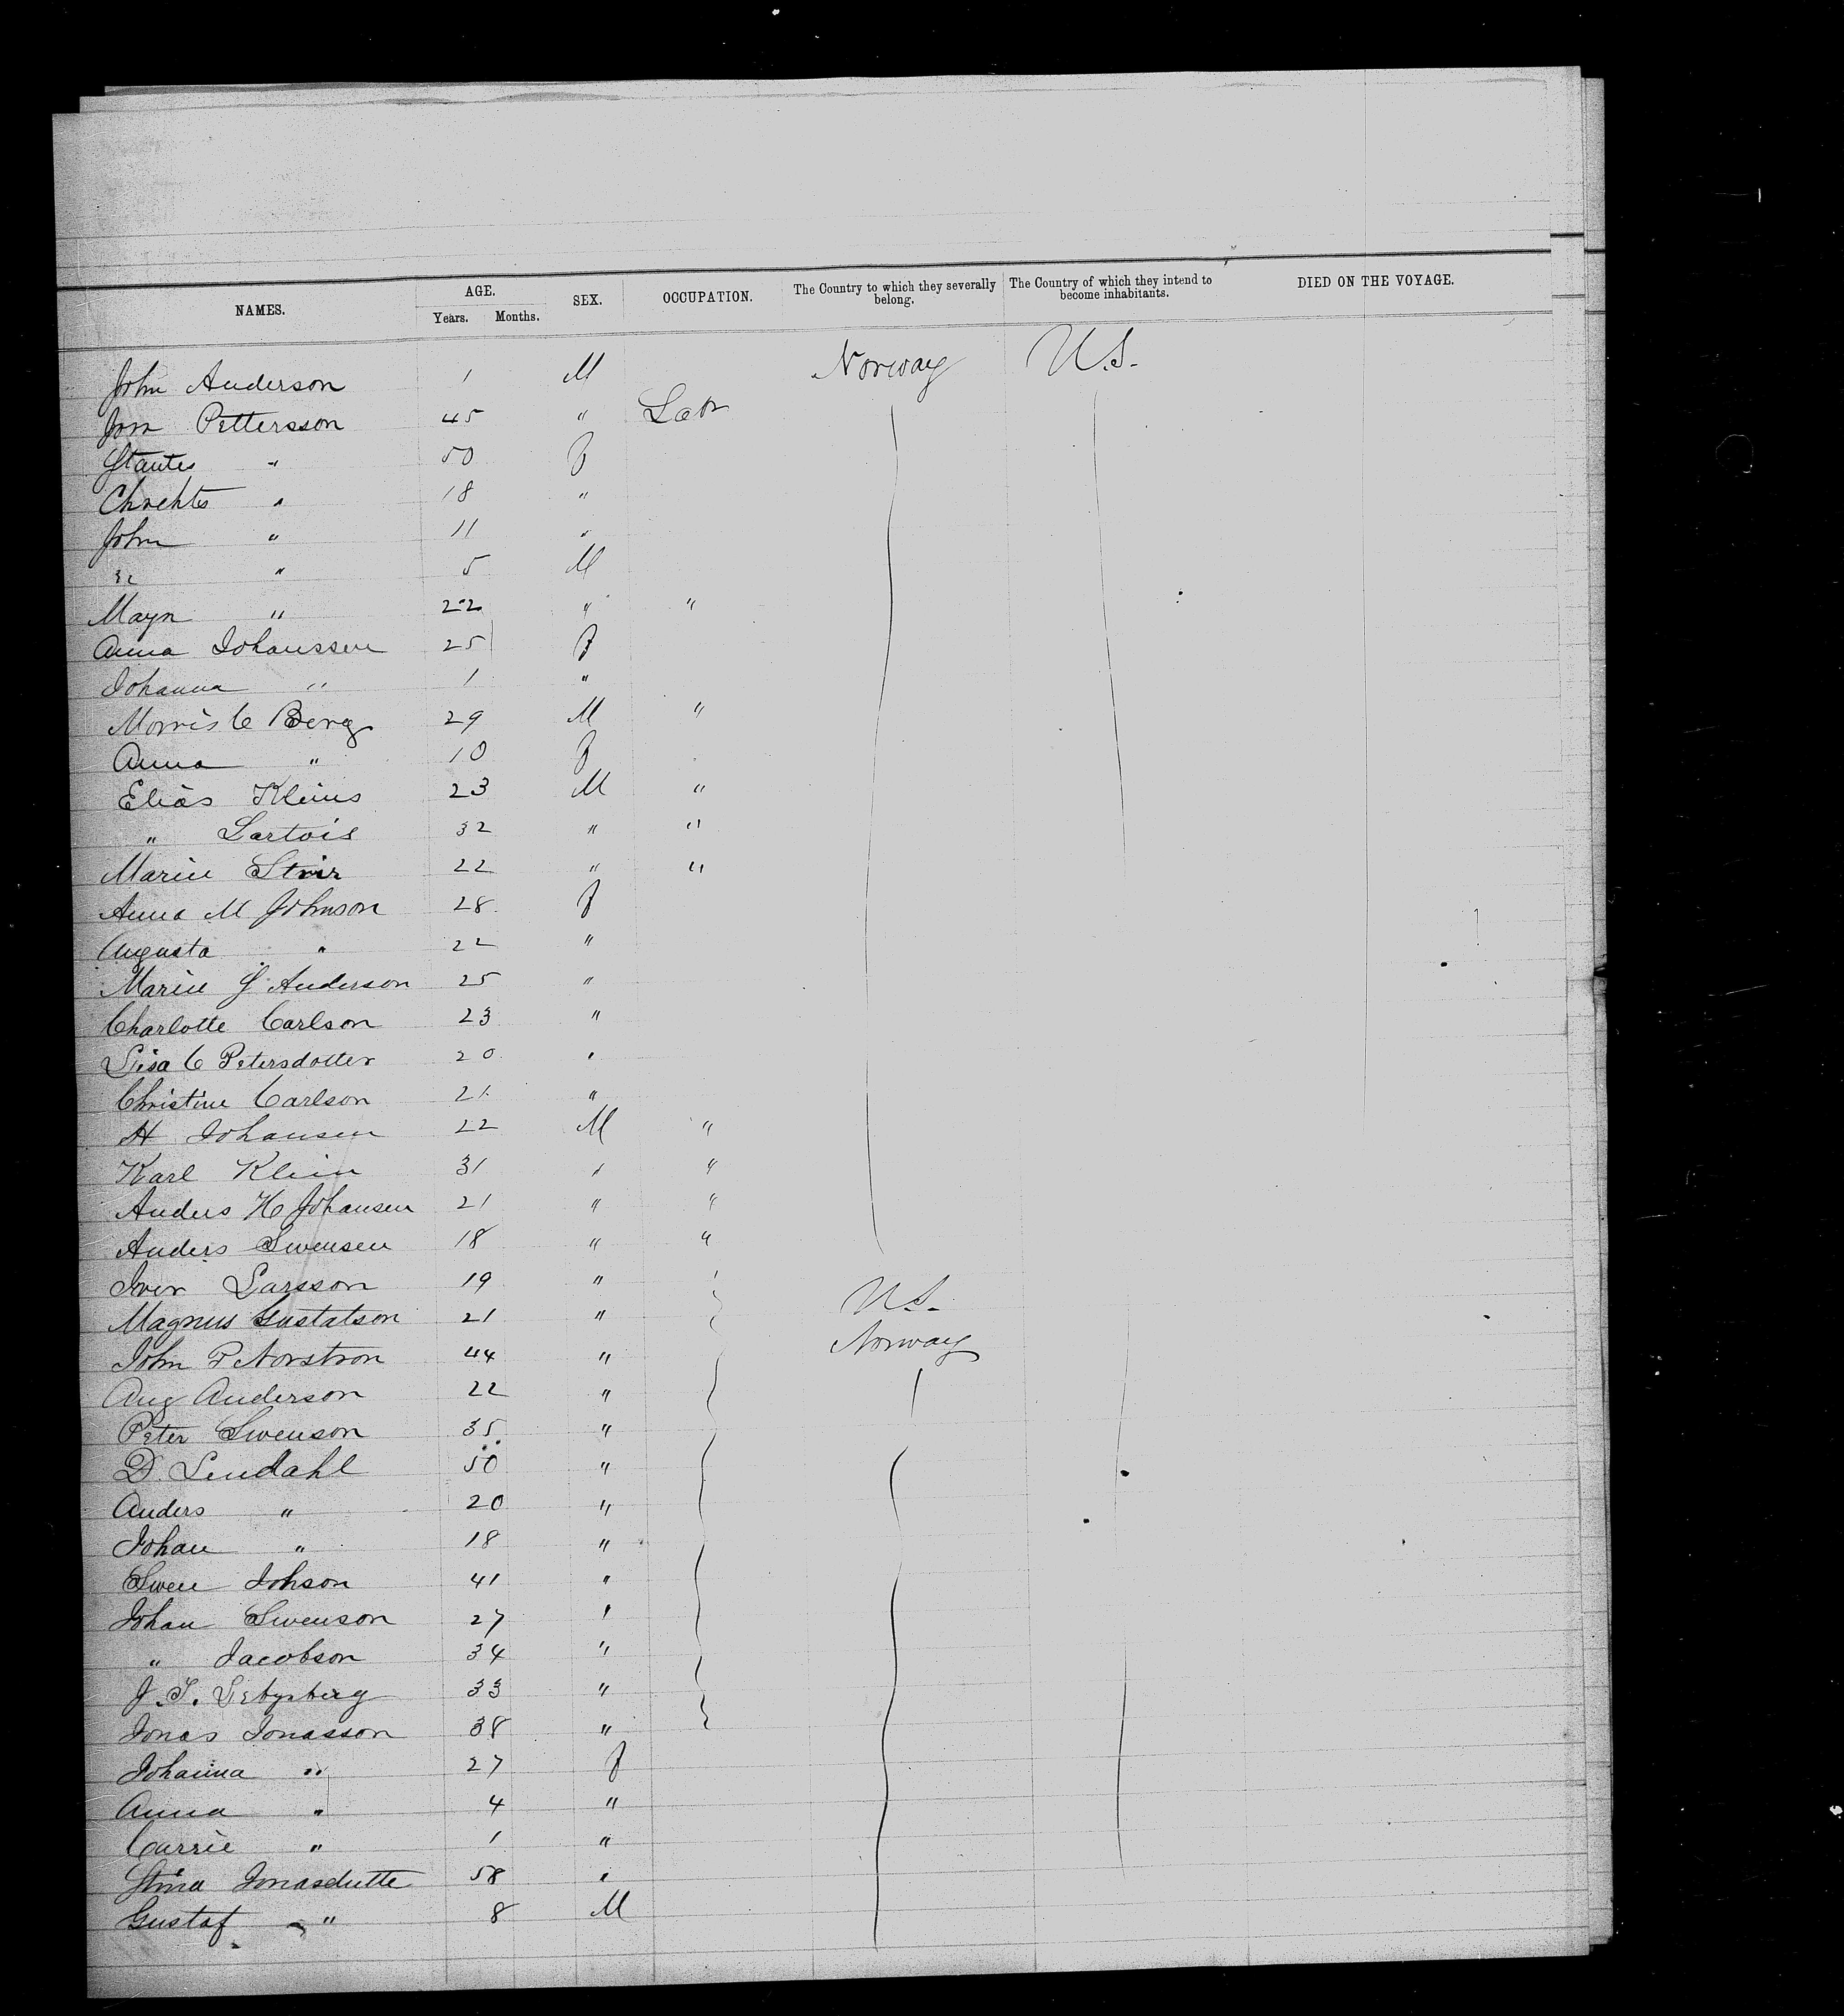 NAMES. AGE. SEX. OCCUPATION. The Country to which they severally belong. The Country of which they intend to become inhabitants. DIED ON THE VOYAGE.
Years. Months.
John Anderson 1 M Norway U.S.
Pettersson 45 " Labr
" 50 f
" 18 "
John " 11 "
" 5 M
Mayn " 22 " "
Anna Johanssen 25 f
Johanna " 1 "
Morris C Berg 29 M "
Anna " 10 f
Elias Kleins 23 M "
" Lartois 32 " "
Marie 22 " "
Anna M Johnson 28 f
Augusta " 22 "
Marie J Anderson 25 "
Charlotte Carlson 23 "
Lisa C Petersdotter 20 "
Christine Carlson 21 "
H Johansen 22 M "
Karl Klein 31 " "
Anders H Johansen 21 " "
Anders Swensen 18 " "
Iver Larsson 19 "
Magnus Gustatson 21 " U.S.
John P Norstron 44 " Norway
Aug Anderson 22 "
Peter Swenson 35 "
D. Lindahl 50 "
Anders " 20 "
Johan " 18 "
Swen Johson 41 "
Johan Swenson 27 "
" Jacobson 34 "
J. 33 "
Jonas Jonasson 38 "
Johanna " 27 f
Anna " 4 "
Carrie " 1 "
Stina Jonasdutte 58 "
Gustaf " 8 M